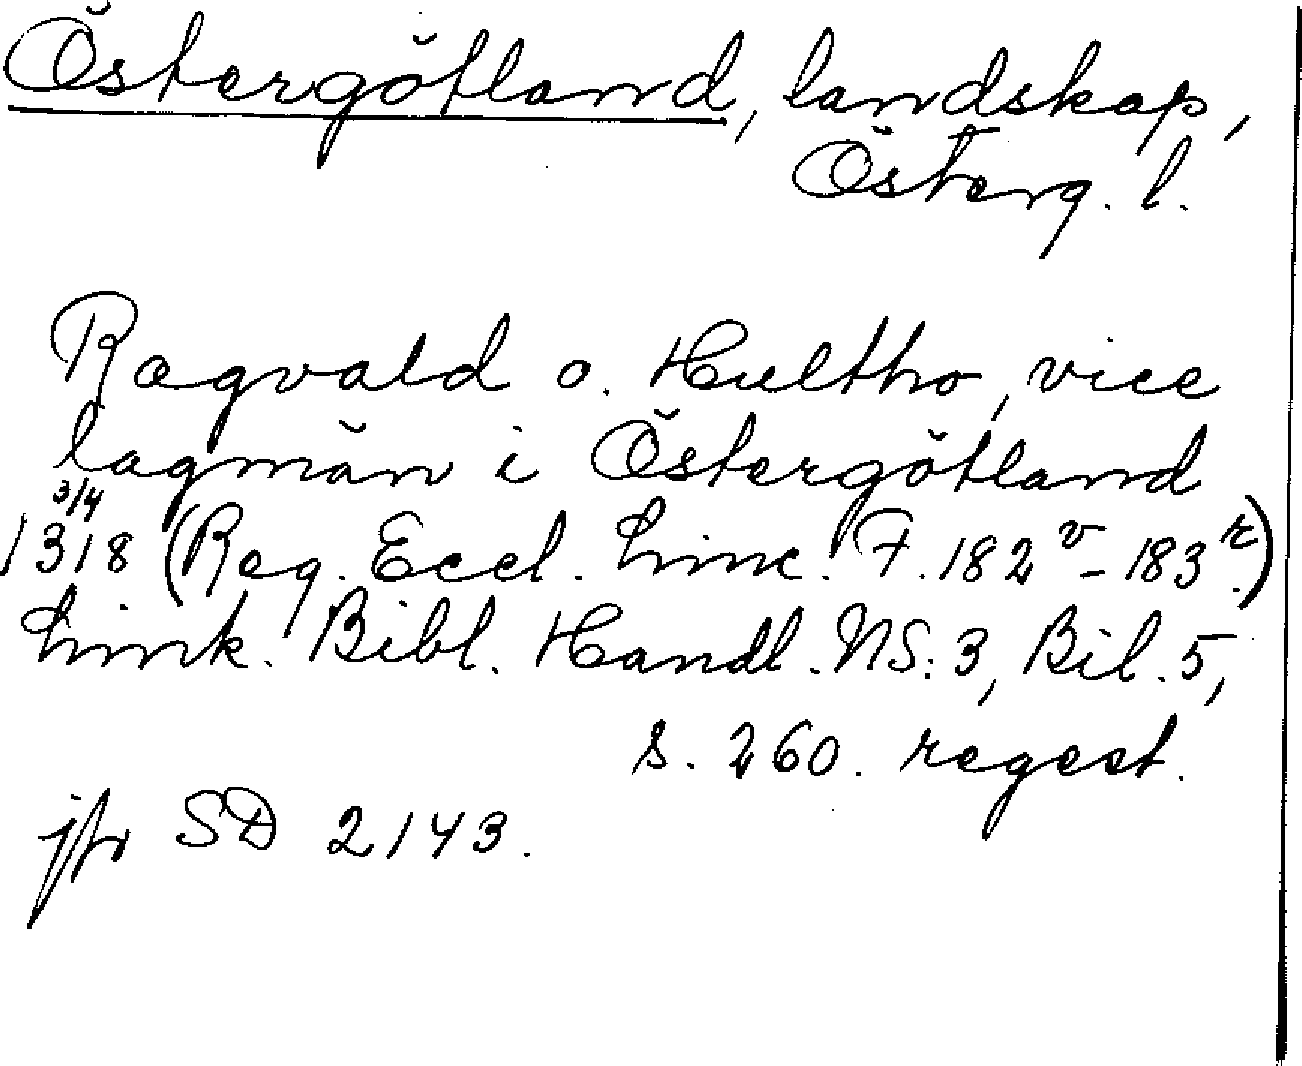 Östergötland, landskap,
Österg. l.
Ragvald o. Hultho, vice
lagman i Östergötland
3/4
1318 (Reg. Eccl. Linc. F. 182 v - 183 r.)
Link. Bibl. Handl. NS: 3, Bil. 5,
s. 260. regest.
jfr SD 2143.